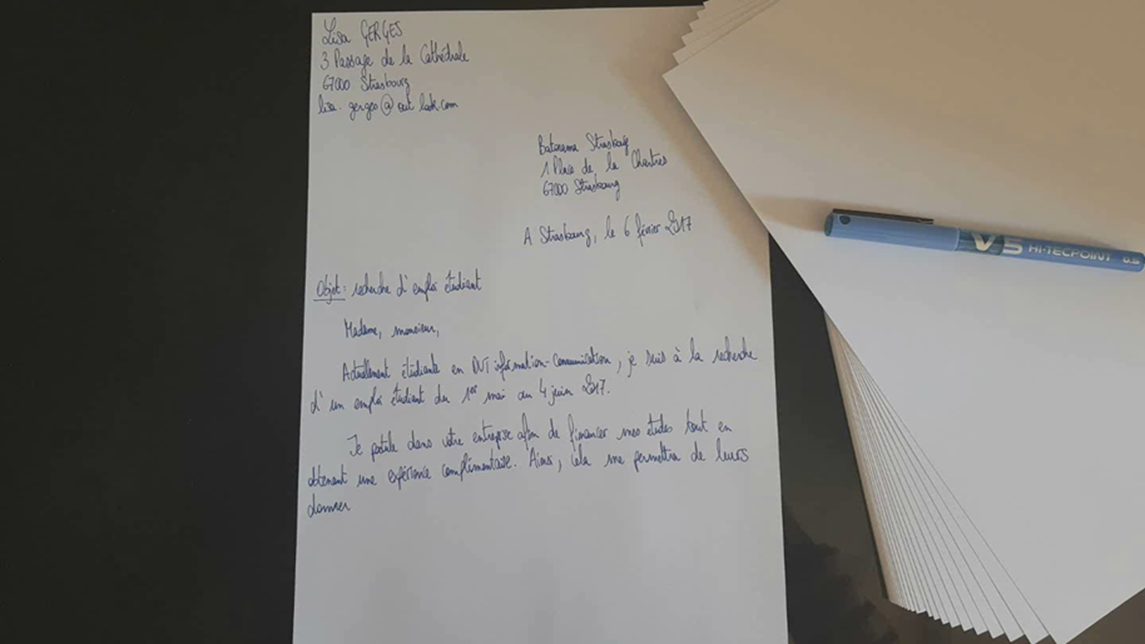 Lisa GERGES
3 Passage de la Cathédrale
67000 Strasbourg
lisa.gerges@outlook.com
Batorama Strasbourg
1 Place de la Chantres
67000 Strasbourg
A Strasbourg, le 6 février 2017
Objet: recherche d'emploi étudiant
Madame, monsieur,
Actuellement étudiante en DUT information-communication, je suis à la recherche
d'un emploi étudiant du 1er mai au 4 juin 2017.
Je postule dans votre entreprise afin de financer mes études tout en
obtenant une expérience complimentaire. Ainsi, cela me permettra de leurs
donner
V5 HI-TECPOINT 0.5